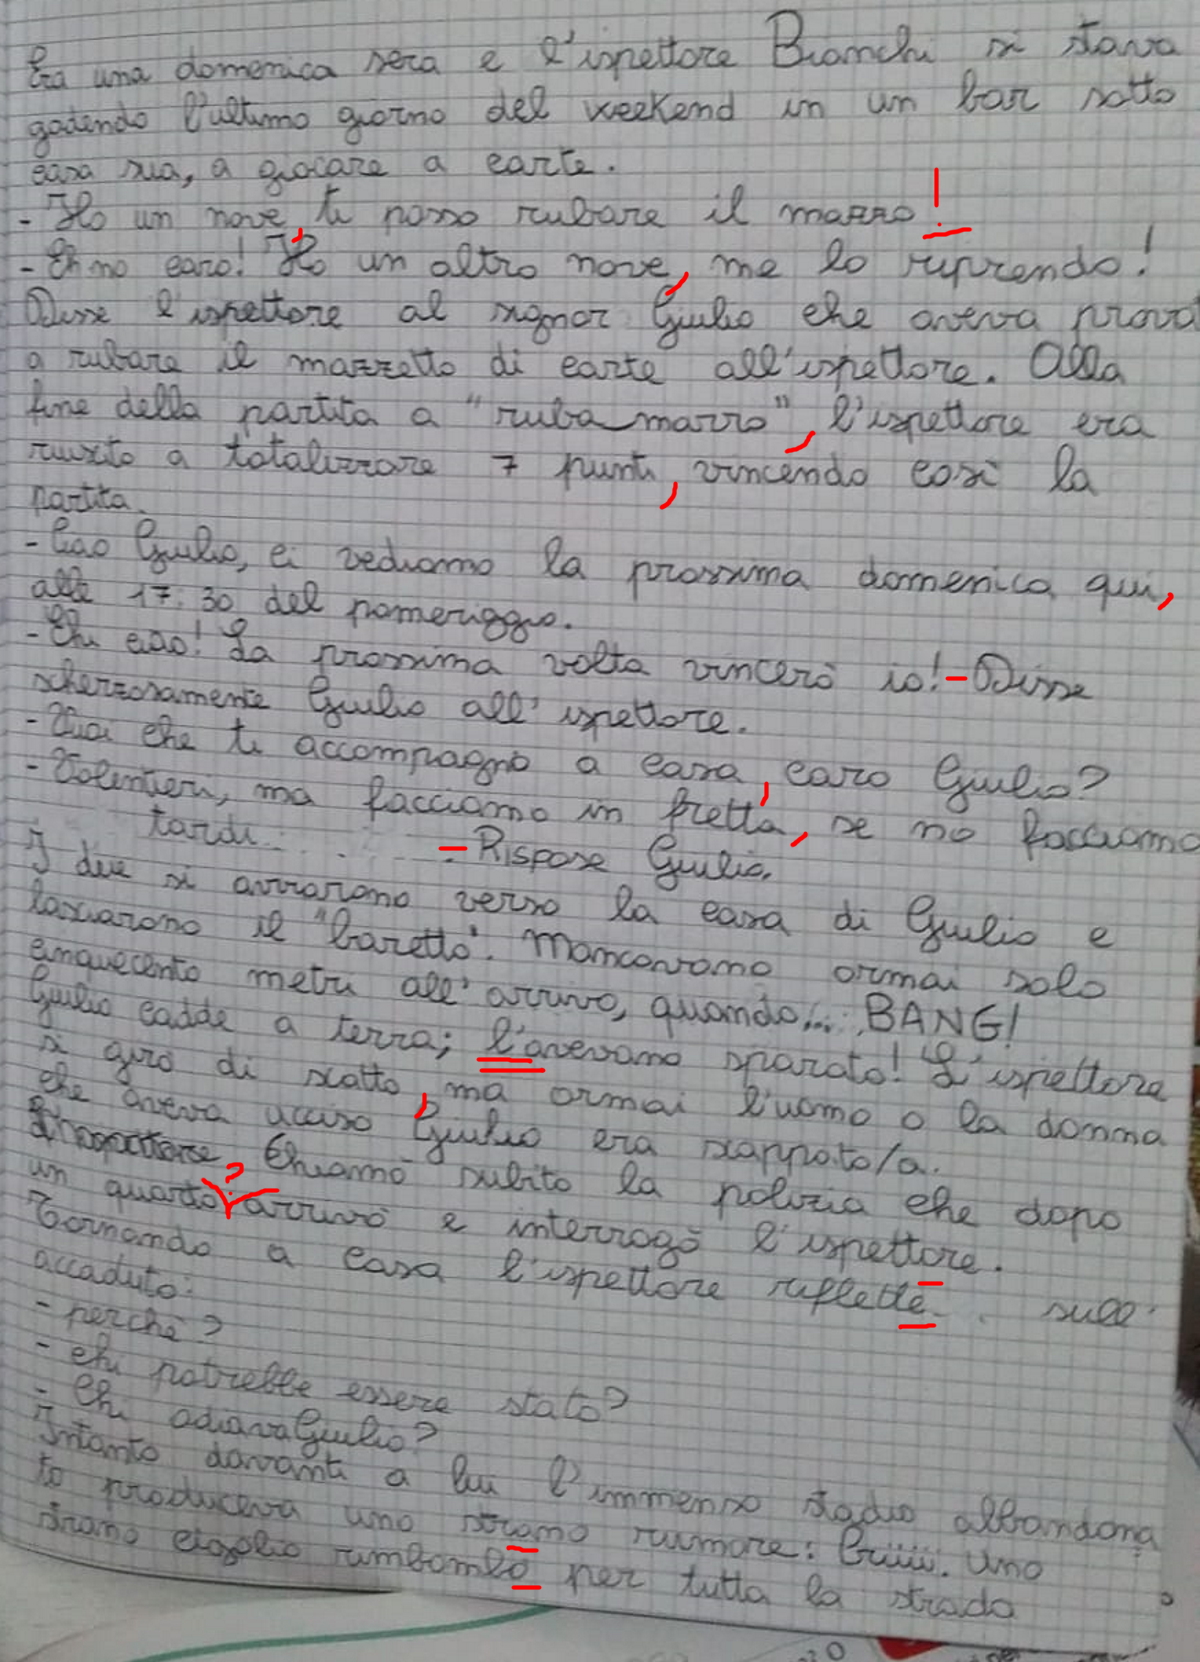 Era una domenica sera e l'ispettore Bianchi si stava
godendo l'ultimo giorno del weekend in un bar sotto
casa sua, a giocare a carte.
- Ho un nove, ti posso rubare il mazzo!
- Eh no caro! Ho un altro nove, me lo riprendo!
Disse l'ispettore al signor Giulio che aveva prova
a rubare il mazzetto di carte all'ispettore. Alla
fine della partita a "ruba mazzo", l'ispettore era
riuscito a totalizzare 7 punti, vincendo così la
partita.
- Ciao Giulio, ci vediamo la prossima domenica qui,
alle 17:30 del pomeriggio.
- Ehi ciao! La prossima volta vincerò io!-Disse
scherzosamente Giulio all'ispettore.
- Vuoi che ti accompagno a casa, caro Giulio?
- Volentieri, ma facciamo in fretta, se no facciamo
tardi. -Rispose Giulio.
I due si avviarono verso la casa di Giulio e
lasciarono il "baretto". Mancavano ormai solo
cinquecento metri all'arrivo, quando... BANG!
Giulio cadde a terra; l'avevano sparato! L'ispettore
si girò di scatto, ma ormai l'uomo o la donna
che aveva ucciso Giulio era scappato/a.
Chiamò subito la polizia che dopo
un quarto ? arrivò e interrogò l'ispettore.
Tornando a casa l'ispettore riflettè sull'
accaduto:
- perché?
- chi potrebbe essere stato?
- Chi odiava Giulio?
Intanto davanti a lui l'immenso stadio abbandona
to produceva uno strano rumore: Criiiii. Uno
strano cigolio rimbombò per tutta la strada